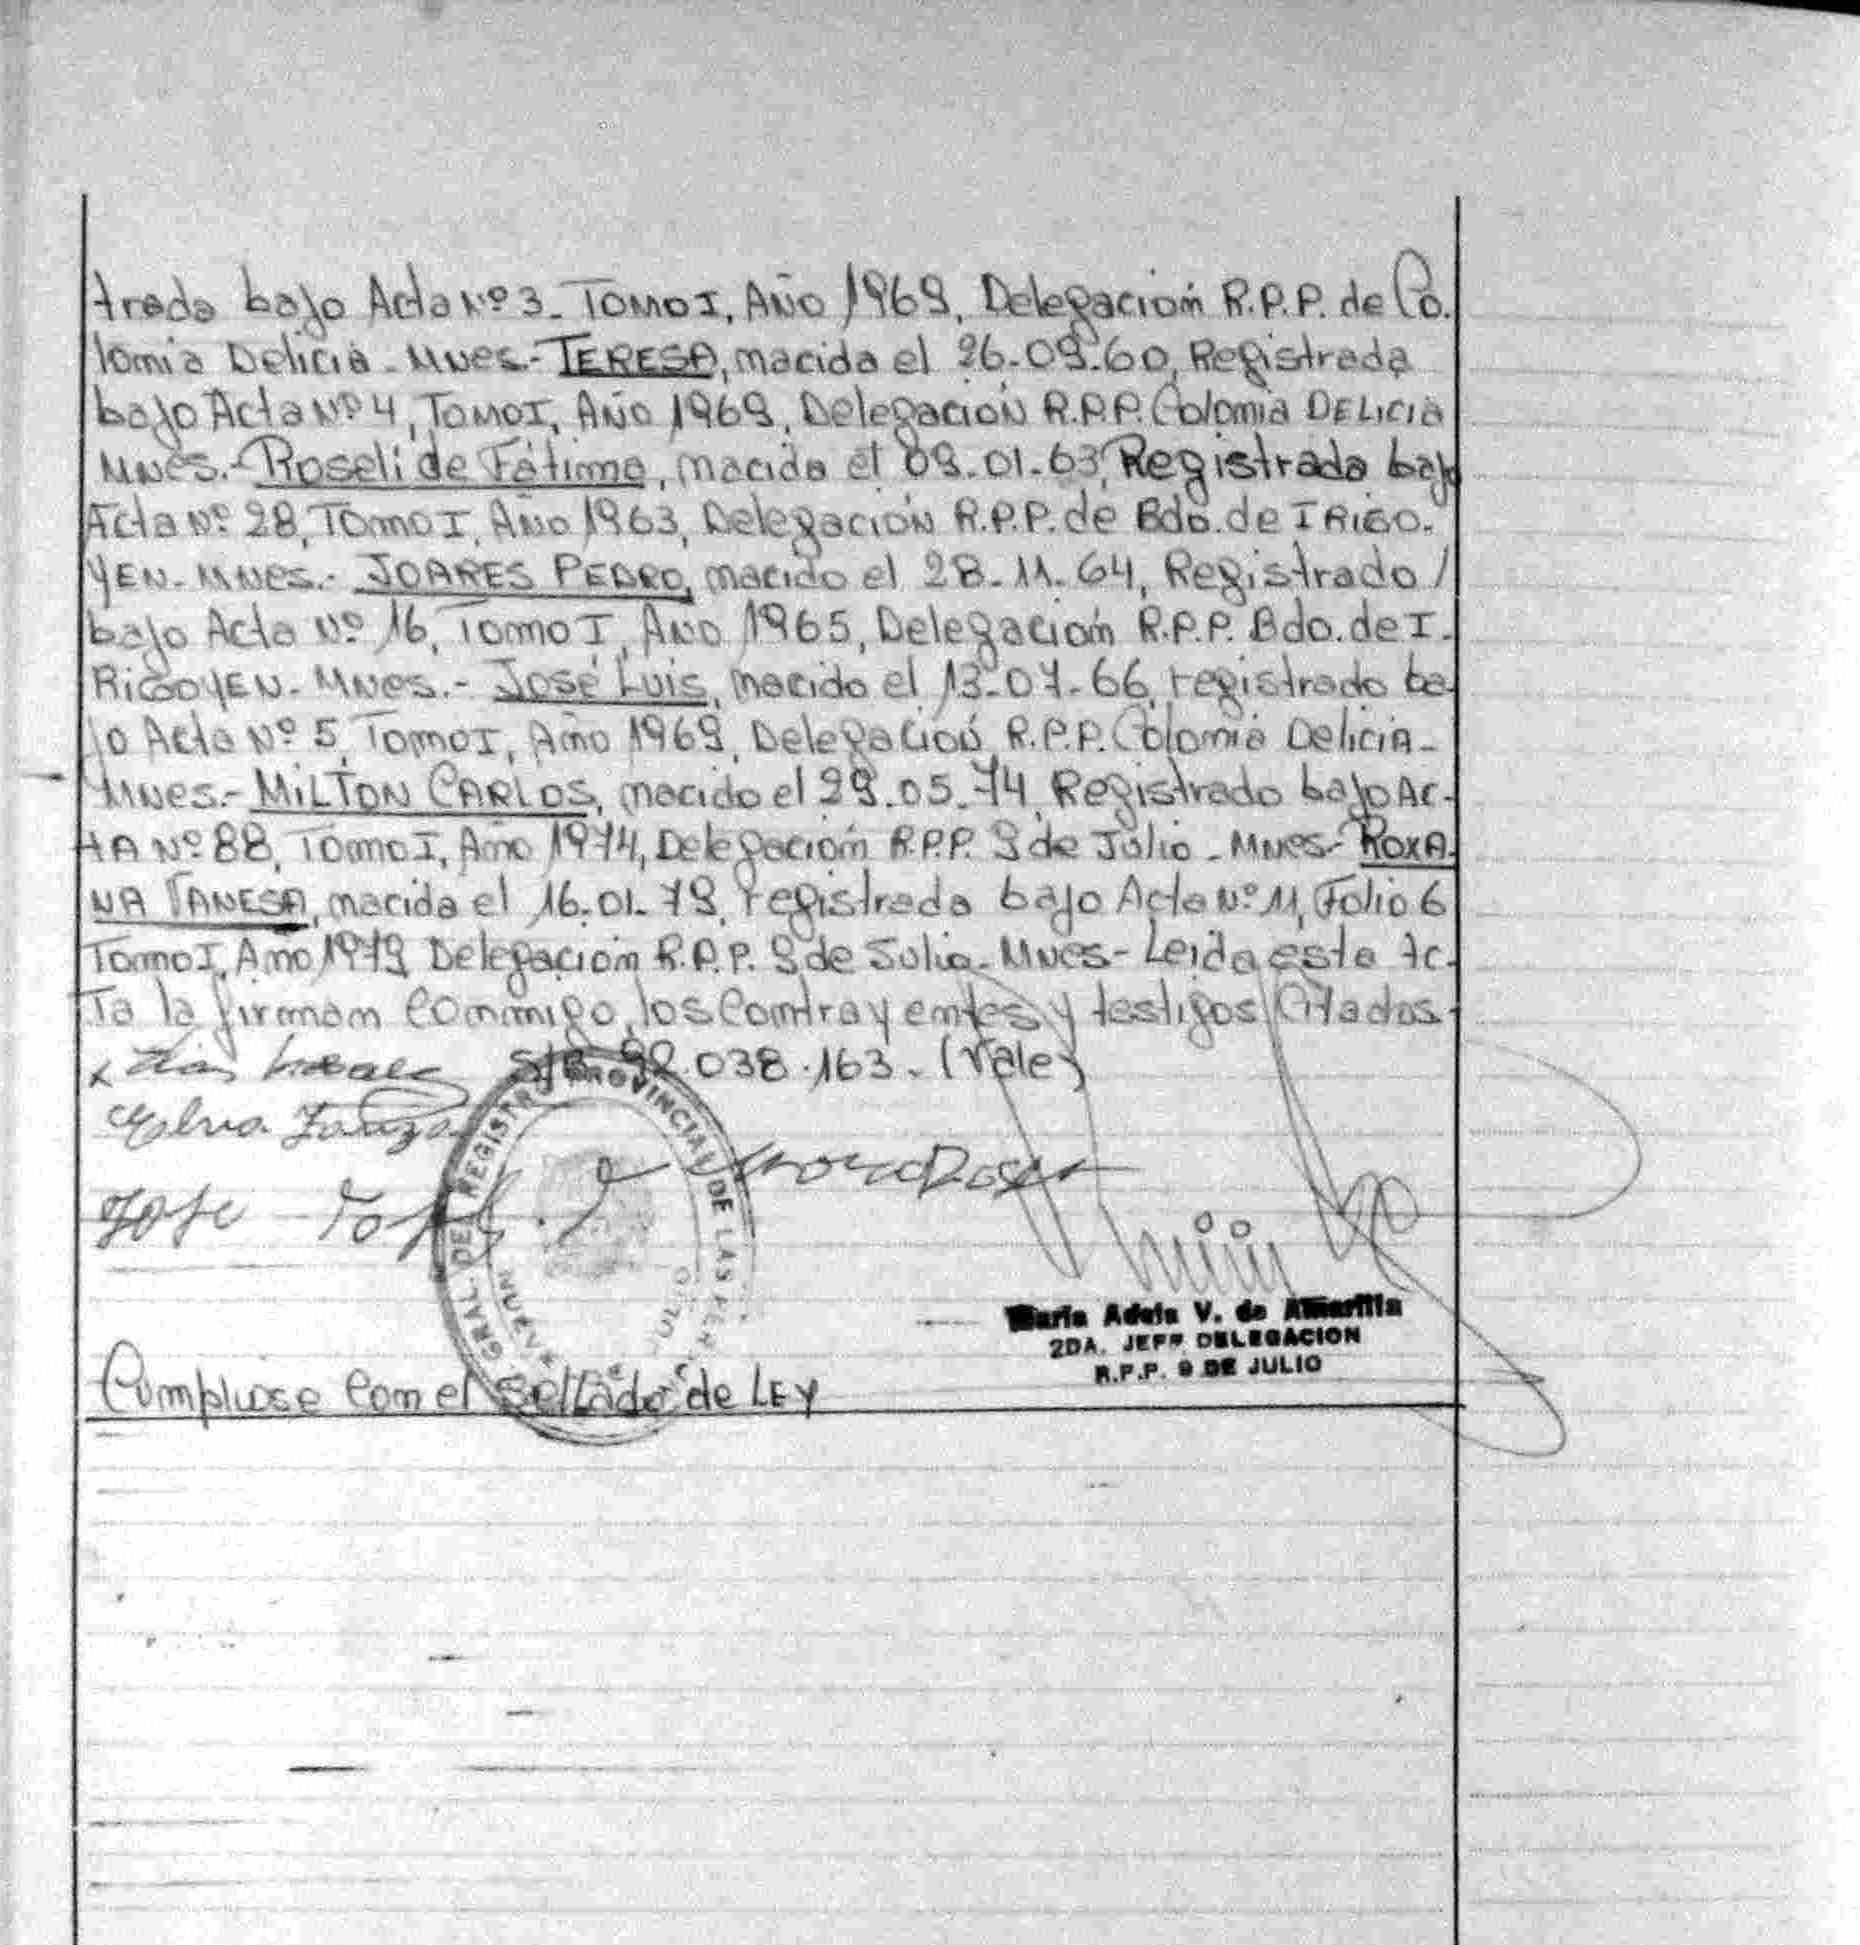 trada bajo Acta Nº 3_ Tomo I, Año 1969, Delegación R.P.P. de Co.
lonia Delicia - Mnes.- TERESA, nacida el 26-09-60, Registrada
bajo Acta Nº 4, Tomo I, Año 1969, Delegación R.P.P. Colonia DELICIA
MNES.- Roseli de Fátima, nacida el 09-01-63, Registrada bajo
Acta Nº 28, Tomo I, Año 1963, Delegación R.P.P. de Bdo. de IRIGO.
YEN- MNES.- JOARES PEDRO, nacido el 28-11-64, Registrado /
bajo Acta Nº 16, Tomo I, Año 1965, Delegación R.P.P. Bdo. de I.
RiGOYEN- MNES.- José Luis, nacido el 13-07-66, registrado ba-
jo Acta Nº 5, Tomo I, Año 1969, Delegación R.P.P. Colonia Delicia-
MNES.- MILTON CARLOS, nacido el 29-05-74, Registrado bajo AC-
TA Nº 88, Tomo I, Año 1974, Delegación R.P.P. 9 de Julio - MNES- ROXA-
NA VANESA, nacida el 16-01-79, registrada bajo Acta Nº 11, Folio 6
Tomo I, Año 1979 Delegación R.P.P. 9 de Julio- MNES- Leida esta Ac-
Ta la firman conmigo, los contrayentes y testigos citados-
S/B 92.038.163- (Vale)
José
GRAL. DEL REGISTRO PROVINCIAL DE LAS PER
NUEVE JULIO
Maria Adela V. de Amarilla
2DA. JEFE DELEGACION
R.P.P. 9 DE JULIO
Cumpliose con el Sellado de LEY